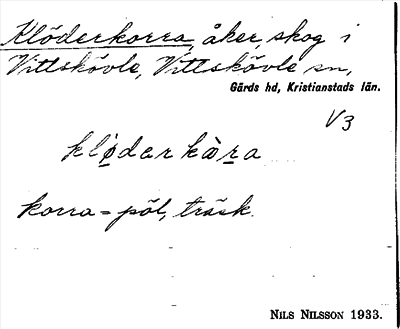 Klöderkorra, åker, skog i
Vittskövle, Vittskövle sn,
Gärds hd, Kristianstads län.
V3
klø̱darkàṟa
korra = pöl, träsk.
NILS NILSSON 1933.